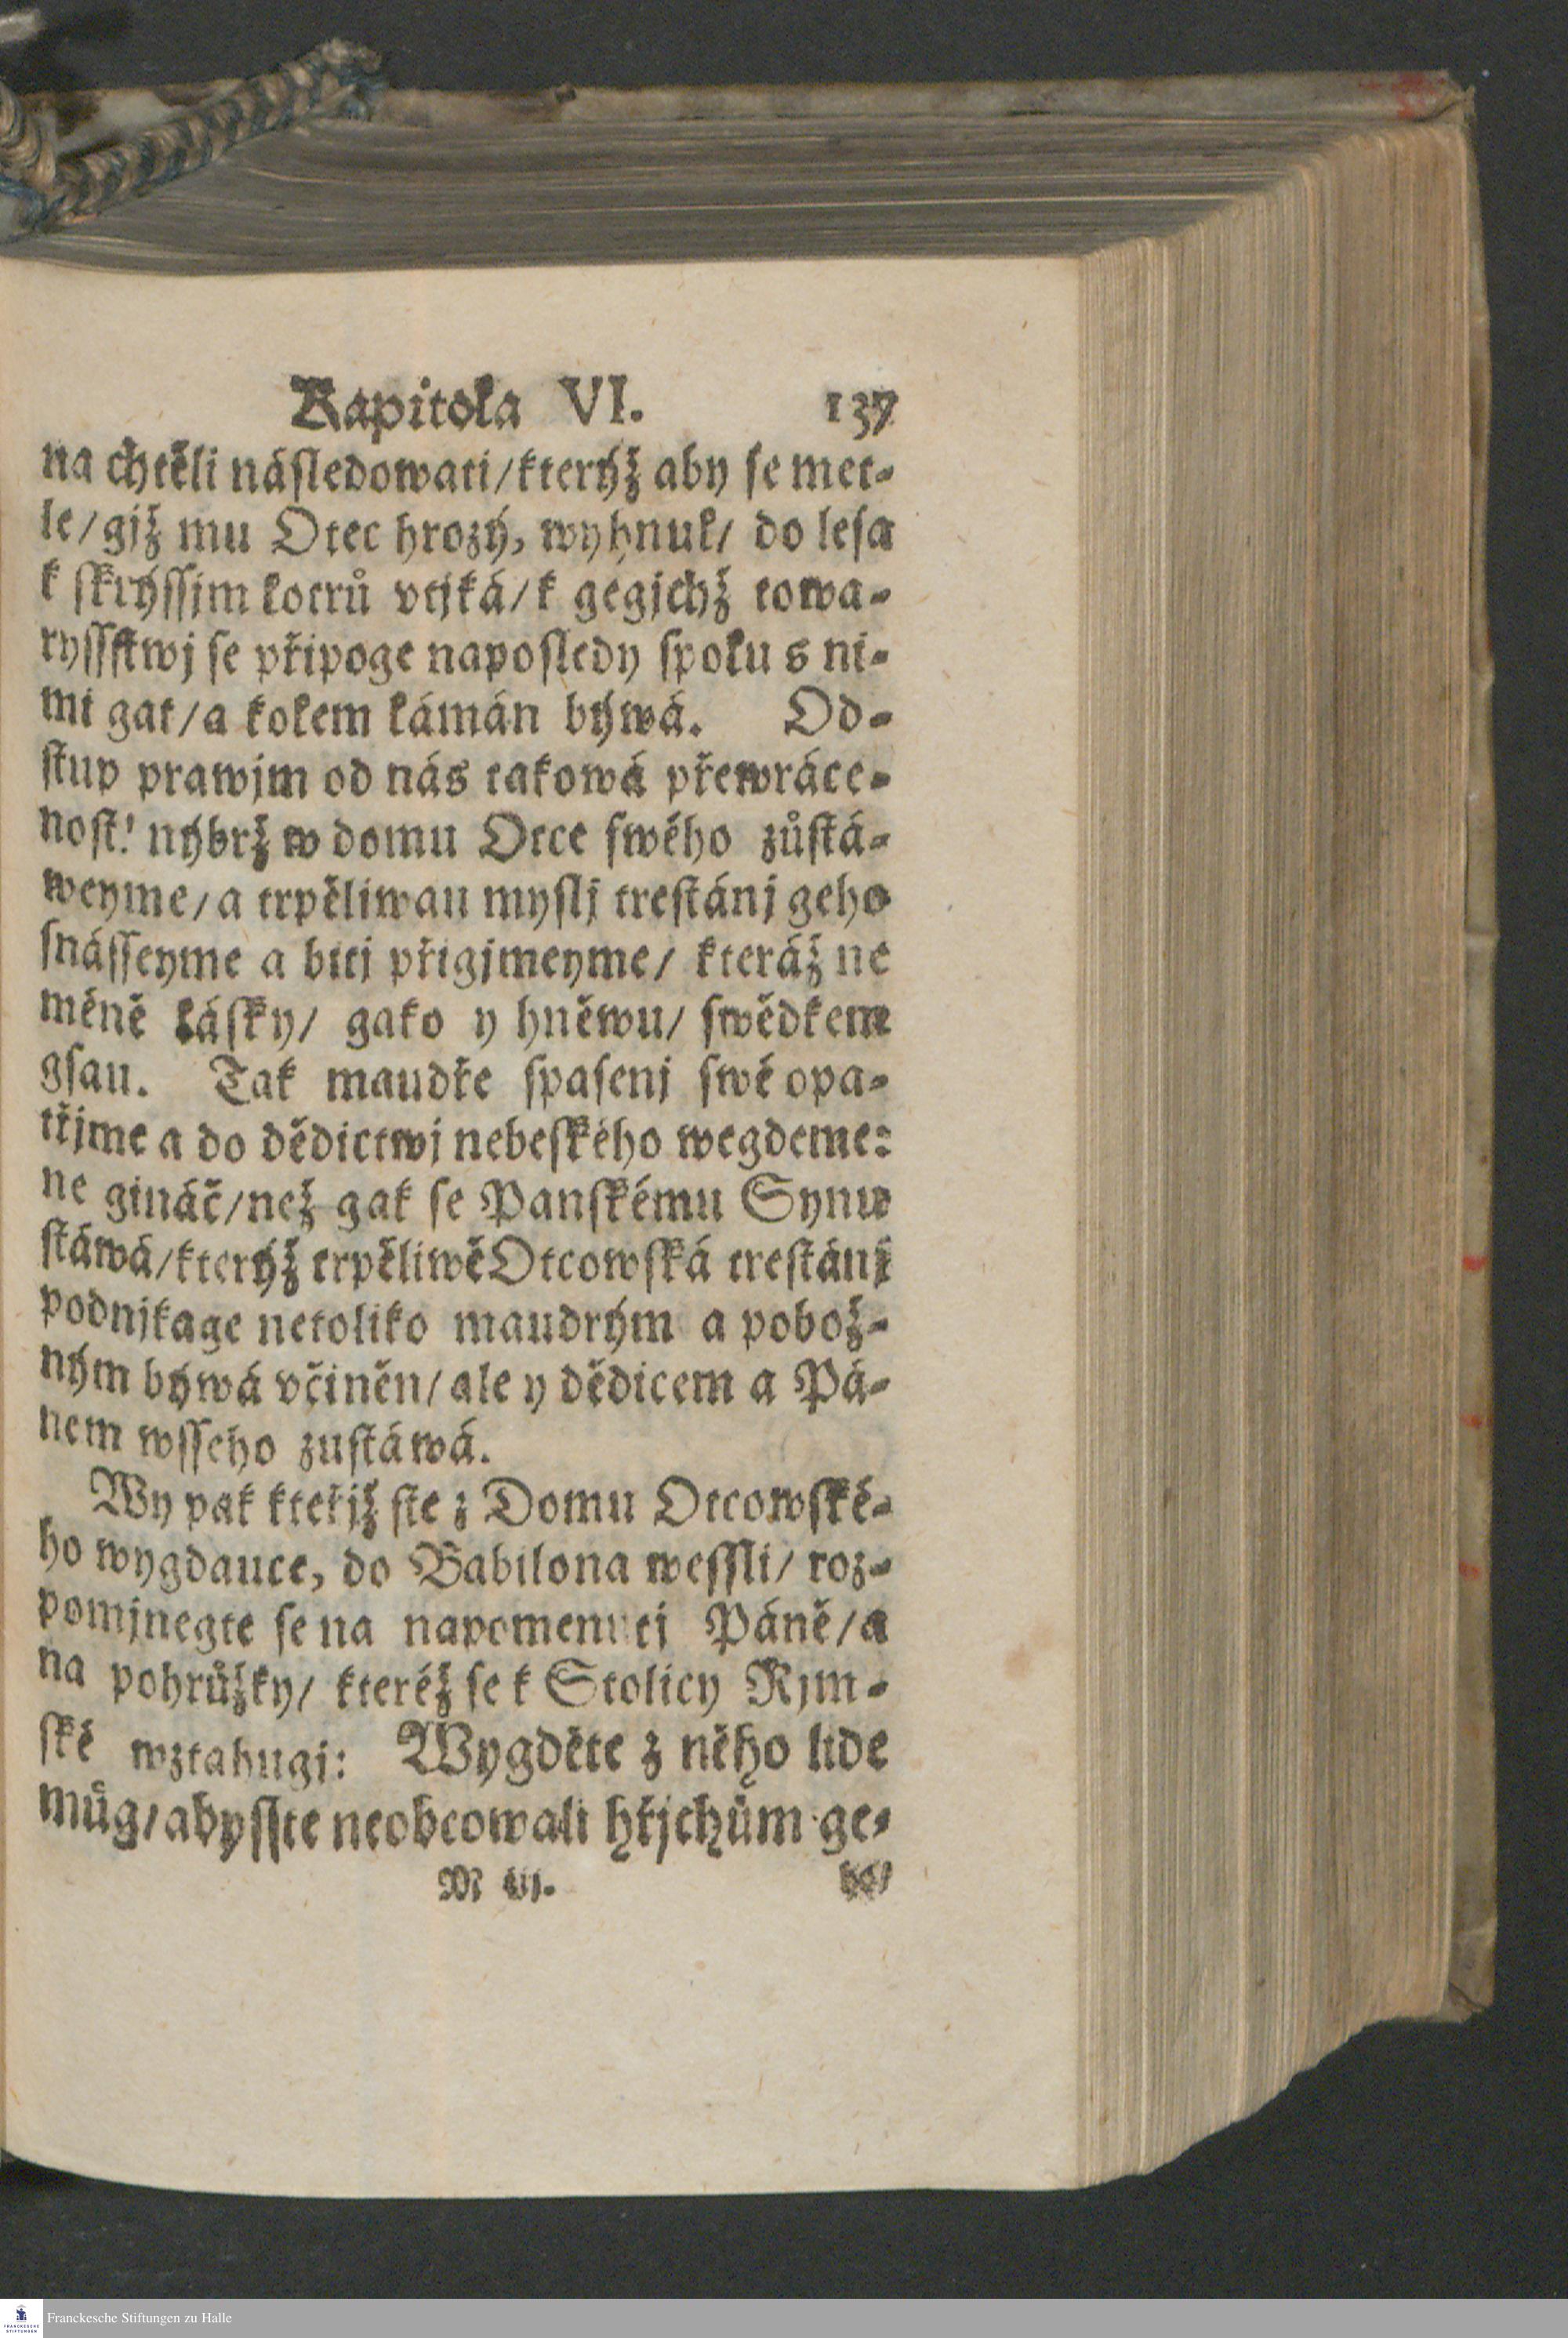 Kapitola VI. 137
na chtěli náſledowati/kterýž aby ſe met⸗
le/gjž mu Otec hrozý, wyhnul/ do leſa
k ſkrýſſjm lotrů vtjká/k gegichž towa⸗
ryſſſtwj ſe připoge napoſledy ſpolu s ni⸗
mi gat/a kolem lámán býwá. Od⸗
ſtup prawjm od nás takowá přewráce⸗
noſt! nýbrž w domu Otce ſwého zůſtá⸗
weyme/a trpěliwau myſlj treſtánj geho
ſnáſſeyme a bitj přigjmeyme/ kteráž ne
méně láſky/ gako y hněwu/ ſwědkem
gſau. Tak maudře ſpaſenj ſwé opa⸗
třjme a do dědictwj nebeſkého wegdeme:
ne gináč/než gak ſe Panſkému Synu
ſtáwá/kterýž trpěliwě Otcowſká treſtánj
podnjkage netoliko maudrým a pobož⸗
ným býwá včiněn/ale y dědicem a Pá⸗
nem wſſeho zuſtáwá.
Wy pak kteřjž ſte z Domu Otcowſké⸗
ho wygdauce, do Babilona weſſli/ roz⸗
pomjnegte ſe na napomenutj Páně/a
na pohrůžky/ kteréž ſe k Stolicy Rjm⸗
ſké wztahugj: Wygděte z něho lide
můg/abyſſte neobcowali hřjchům ge⸗
M iij.
Franckesche Stiftungen zu Halle
FRANCKESCHE
STIFTUNGEN